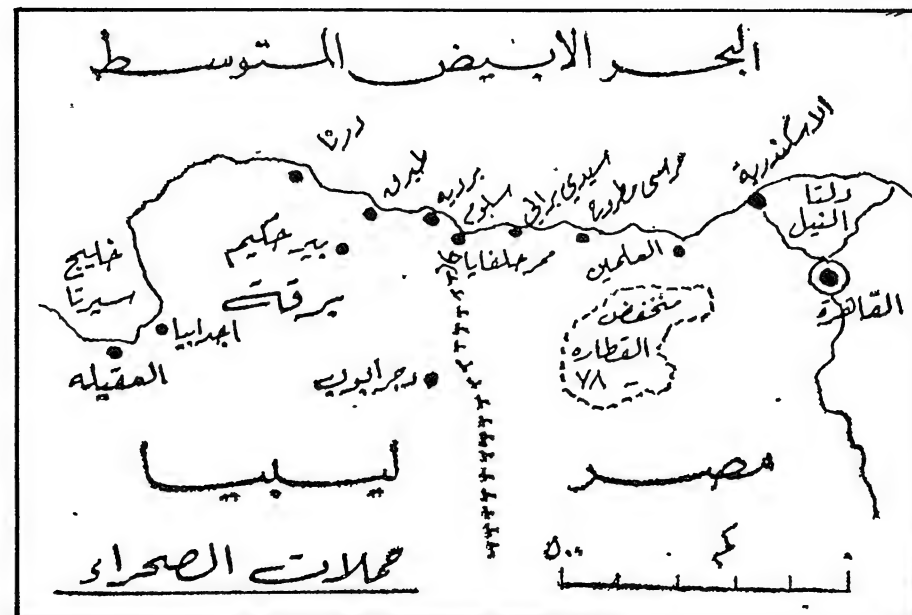 البحر الابيض المتوسط
درنا
طبرق
برديه
سلوم
سيدي براني
مرسى مطروح
الاسكندرية
دلتا
النيل
القاهرة
العلمين
ممر حلفايا
بير حكيم
برقة
خليج
سيرتا
اجدابيا
العقيله
جرابوب
منخفض
القطاره
٧٨ -
ليبيا
مصر
حملات الصحراء
٥٠٠
كم